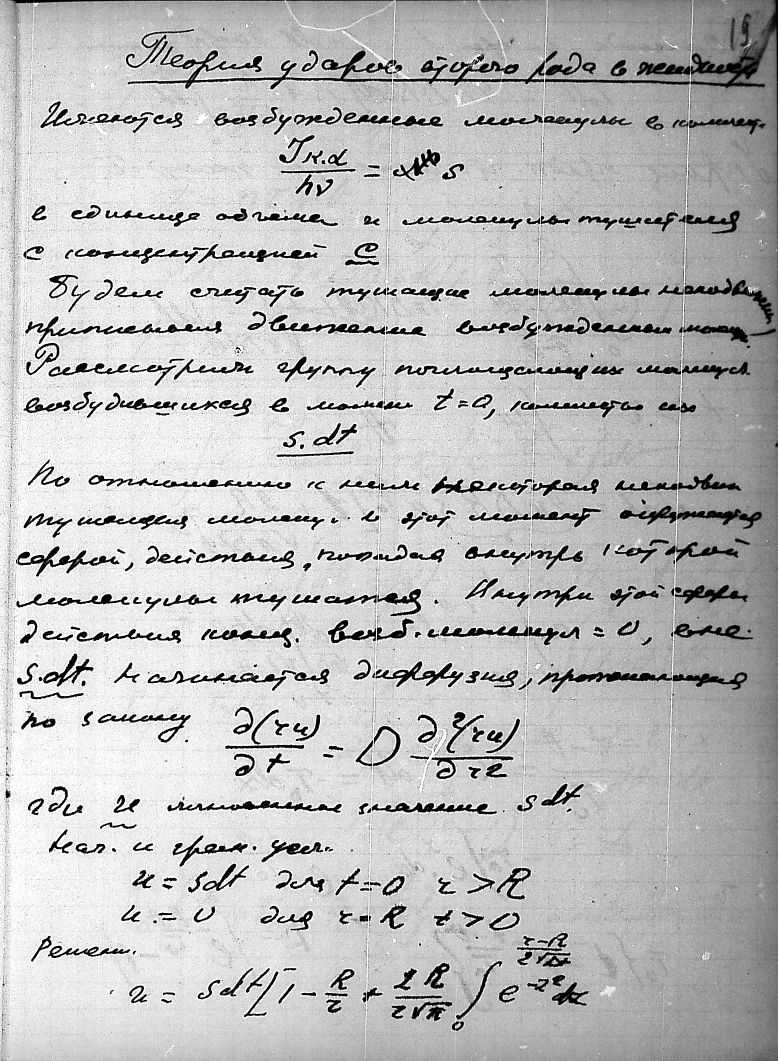 15
Теория ударов второго рода в жидкости
Имеются возбужденные молекулы в колич.
Iк.d / hν = s
в единице объема и молекулы тушителя
с концентрацией C
Будем считать тушащие молекулы неподвижными
приписывая движение возбужденным молек.
Рассмотрим группу поглощающих молекул
возбудившихся в момент t=0, количество их
s.dt
По отношению к ним некоторая неподвиж
тушащая молекул. в этот момент окружается
сферой, действия, попадая внутрь которой
молекулы тушатся. Внутри этой сферы
действия конц. возб. молекул = 0, вне
s.dt. Начинается диффузия, протекающая
по закону ∂(ru)/∂t = D ∂²(ru)/∂r²
где u мгновенное значение sdt.
Нач. и гран. усл.
u = sdt для t=0 r>R
u = 0 для r=R t>0
Решен.
u = sdt[1 - R/r + 2R/(r√π) ∫₀^((r-R)/(2√Dt)) e^(-z²) dz